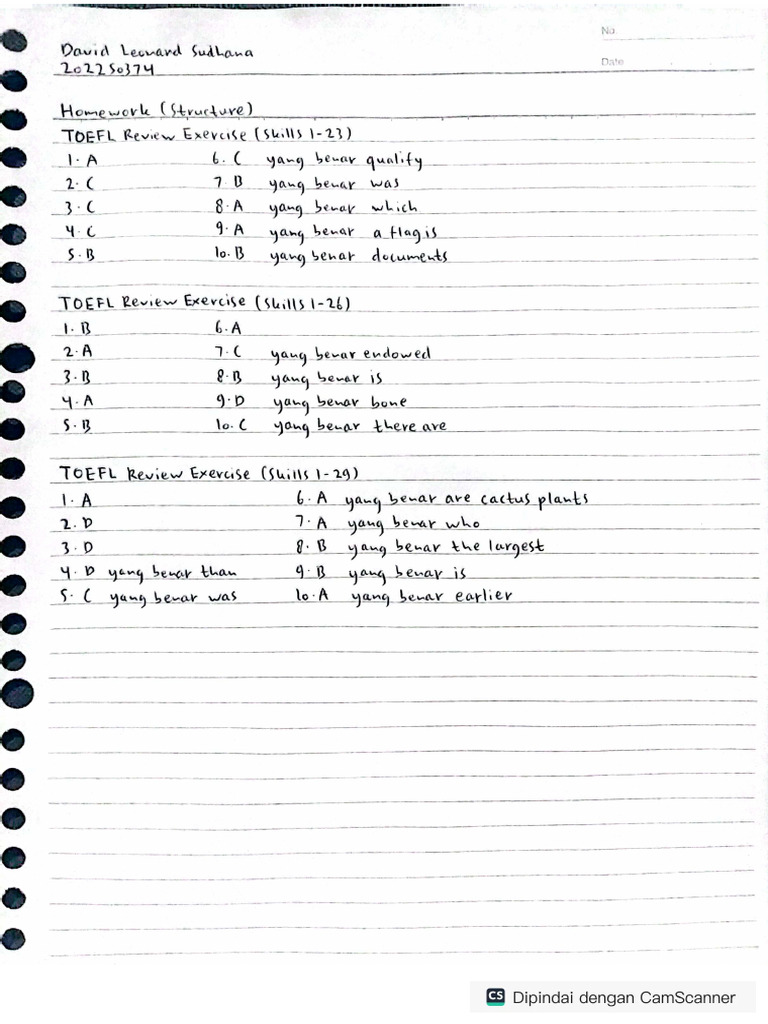 No.
Date
David Leonard Sudhana
202250374
Homework (Structure)
TOEFL Review Exercise (Skills 1-23)
1. A 6. C yang benar qualify
2. C 7. B yang benar was
3. C 8. A yang benar which
4. C 9. A yang benar a flag is
5. B 10. B yang benar documents
TOEFL Review Exercise (Skills 1-26)
1. B 6. A
2. A 7. C yang benar endowed
3. B 8. B yang benar is
4. A 9. D yang benar bone
5. B 10. C yang benar there are
TOEFL Review Exercise (Skills 1-29)
1. A 6. A yang benar are cactus plants
2. D 7. A yang benar who
3. D 8. B yang benar the largest
4. D yang benar than 9. B yang benar is
5. C yang benar was 10. A yang benar earlier
CS Dipindai dengan CamScanner